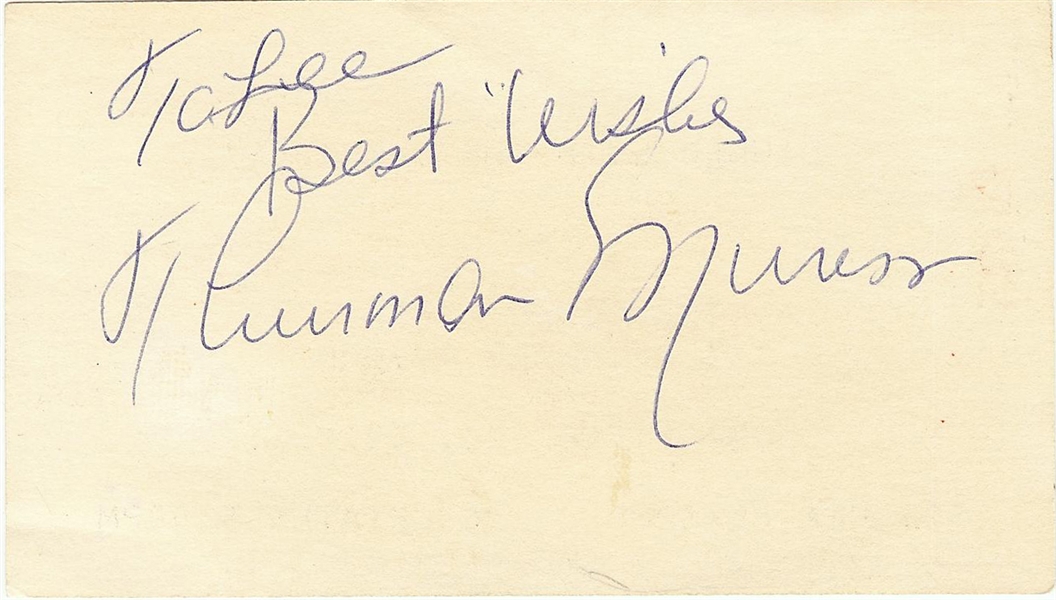 To Lee
Best Wishes
Thurman Munson